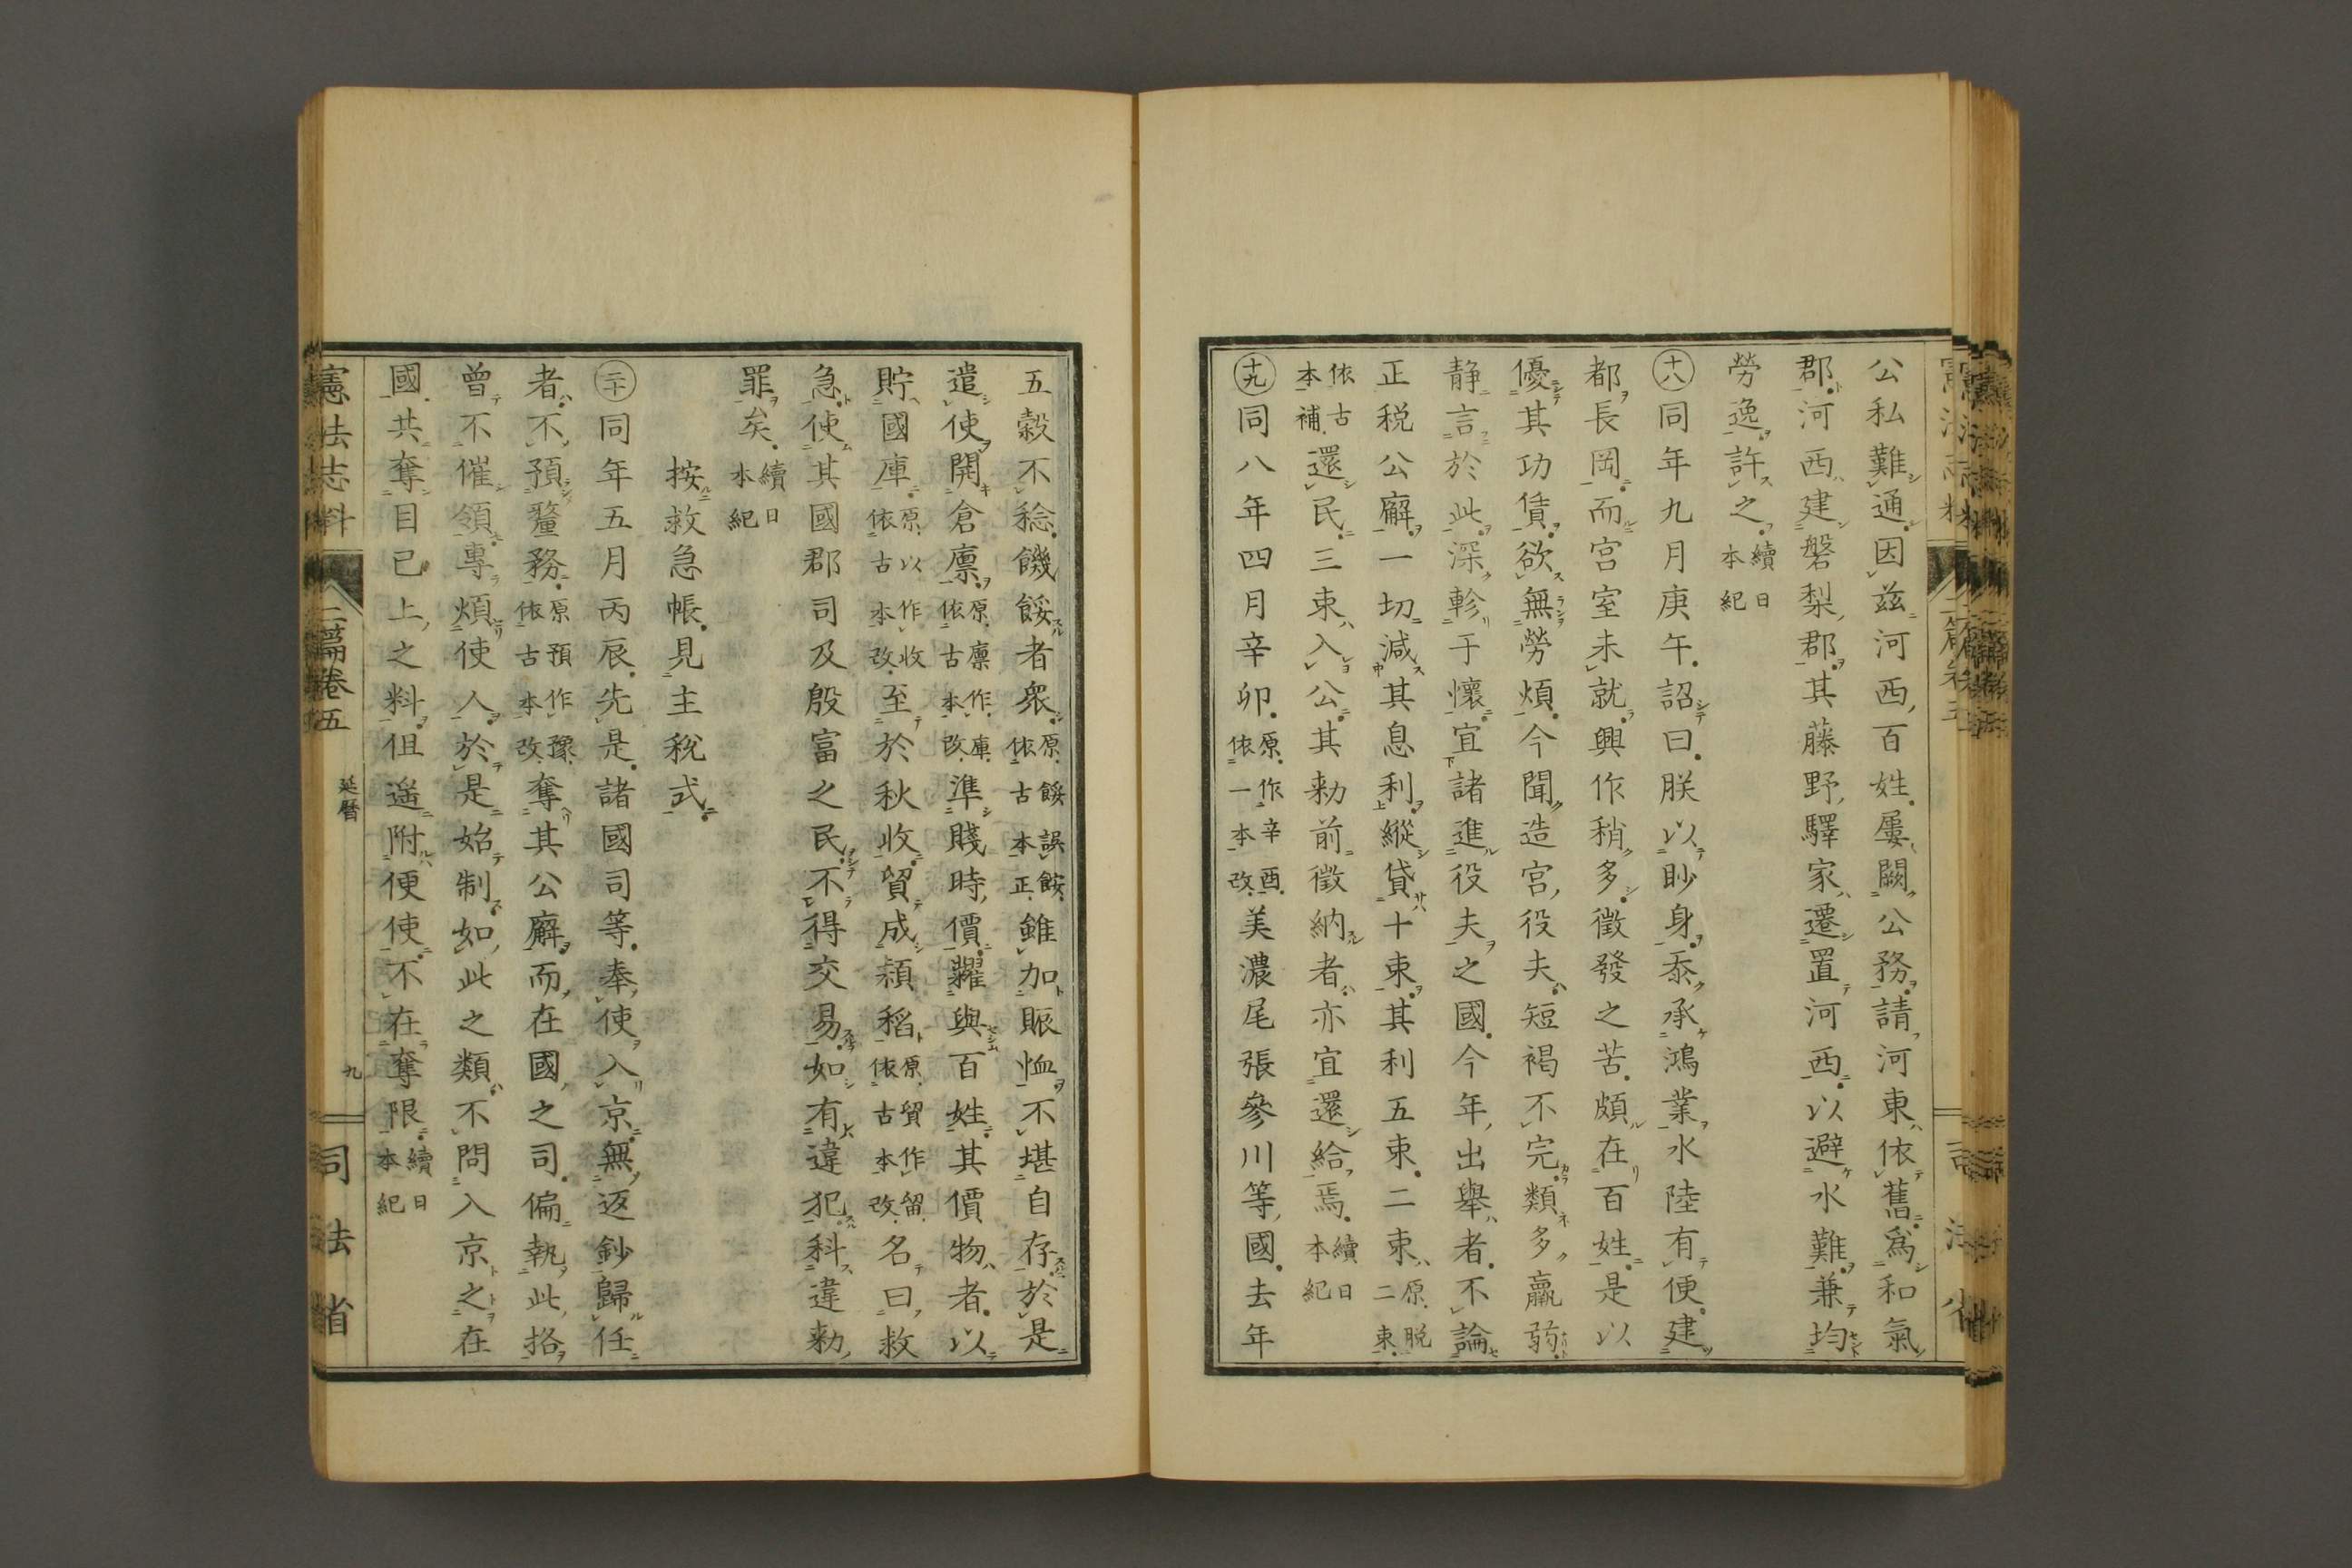 公私難通因茲河西百姓屢闕公務請河東依舊爲和氣
郡河西建磐梨郡其藤野驛家遷置河西以避水難兼均
勞逸許之續日本紀
十八同年九月庚午詔曰朕以眇身忝承鴻業水陸有便建
都長岡而宮室未就興作稍多徵發之苦頗在百姓是以
優其功賃欲無勞煩今聞造宮役夫短褐不完類多羸弱
静言於此深軫于懷宜諸進役夫之國今年出舉者不論
正税公廨一切減其息利縱貸十束其利五束二束原脱二束
依古本補還民三束入公其勅前徵納者亦宜還給焉續日本紀
十九同八年四月辛卯原作辛酉依一本改美濃尾張參川等國去年
五穀不稔饑餒者衆原餒誤餧依古本正雖加賑恤不堪自存於是
遣使開倉廩原廩作庫依古本改準賤時價糶與百姓其價物者以
貯國庫原以作收依古本改至於秋收貿成穎稻原貿作留依古本改名曰救
急使其國郡司及殷富之民不得交易如有違犯科違勅
罪矣續日本紀
按救急帳見主税式
二十同年五月丙辰先是諸國司等奉使入京無返鈔歸任
者不預釐務原預作豫依古本改奪其公廨而在國之司偏執此格
曾不催領專煩使人於是始制如此之類不問入京之在
國共奪目已上之料但遥附便使不在奪限續日本紀
憲法志料 三篇卷五 延暦 九 司法省